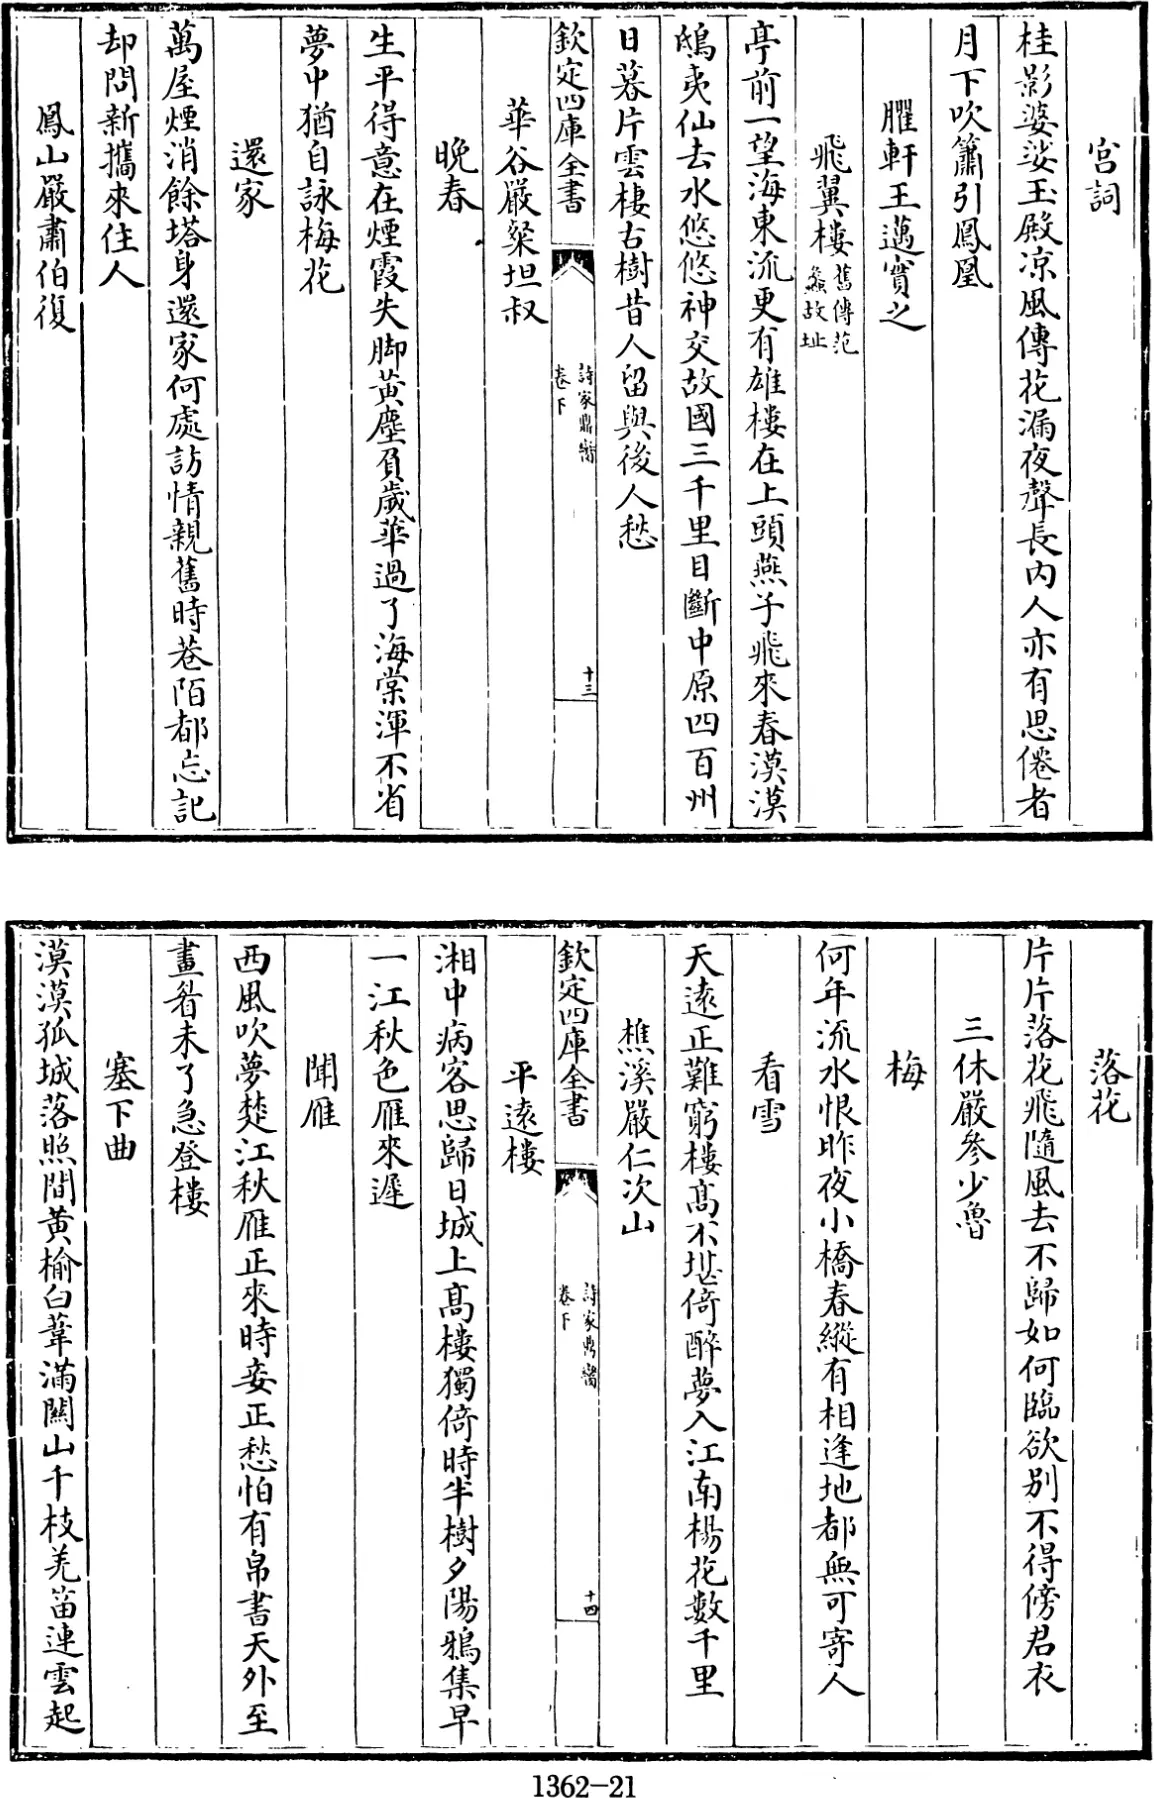 宫詞
桂影婆娑玉殿凉風傳花漏夜聲長内人亦有思倦者
月下吹簫引鳳凰
臞軒王邁實之
飛翼樓舊傳范蠡故址
亭前一望海東流更有雄樓在上頭燕子飛來春漠漠
鴟夷仙去水悠悠神交故國三千里目斷中原四百州
日暮片雲棲古樹昔人留與後人愁
欽定四庫全書
詩家鼎臠
卷下
十三
華谷嚴粲坦叔
晚春
生平得意在煙霞失脚黃塵負歲華過了海棠渾不省
夢中猶自詠梅花
還家
萬屋煙消餘塔身還家何處訪情親舊時巷陌都忘記
却問新攜來住人
鳳山嚴肅伯復
落花
片片落花飛隨風去不歸如何臨欲別不得傍君衣
三休嚴參少魯
梅
何年流水恨昨夜小橋春縱有相逢地都無可寄人
看雪
天遠正難窮樓髙不堪倚醉夢入江南楊花數千里
樵溪嚴仁次山
欽定四庫全書
詩家鼎臠
卷下
十四
平遠樓
湘中病客思歸日城上髙樓獨倚時半樹夕陽鴉集早
一江秋色雁來遲
聞雁
西風吹夢楚江秋雁正來時妾正愁怕有帛書天外至
畫眉未了急登樓
塞下曲
漠漠孤城落照間黃榆白葦滿關山千枝羌笛連雲起
1362-21